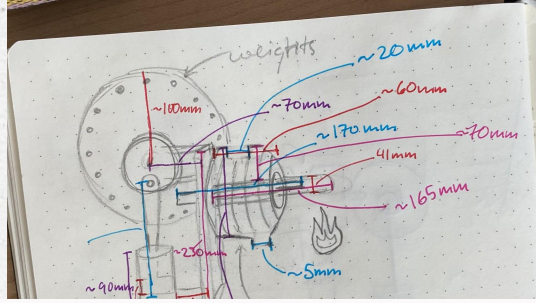 weights
~20mm
~60mm
~100mm
~70mm
~170mm
~70mm
41mm
~165mm
~250mm
~5mm
~90mm